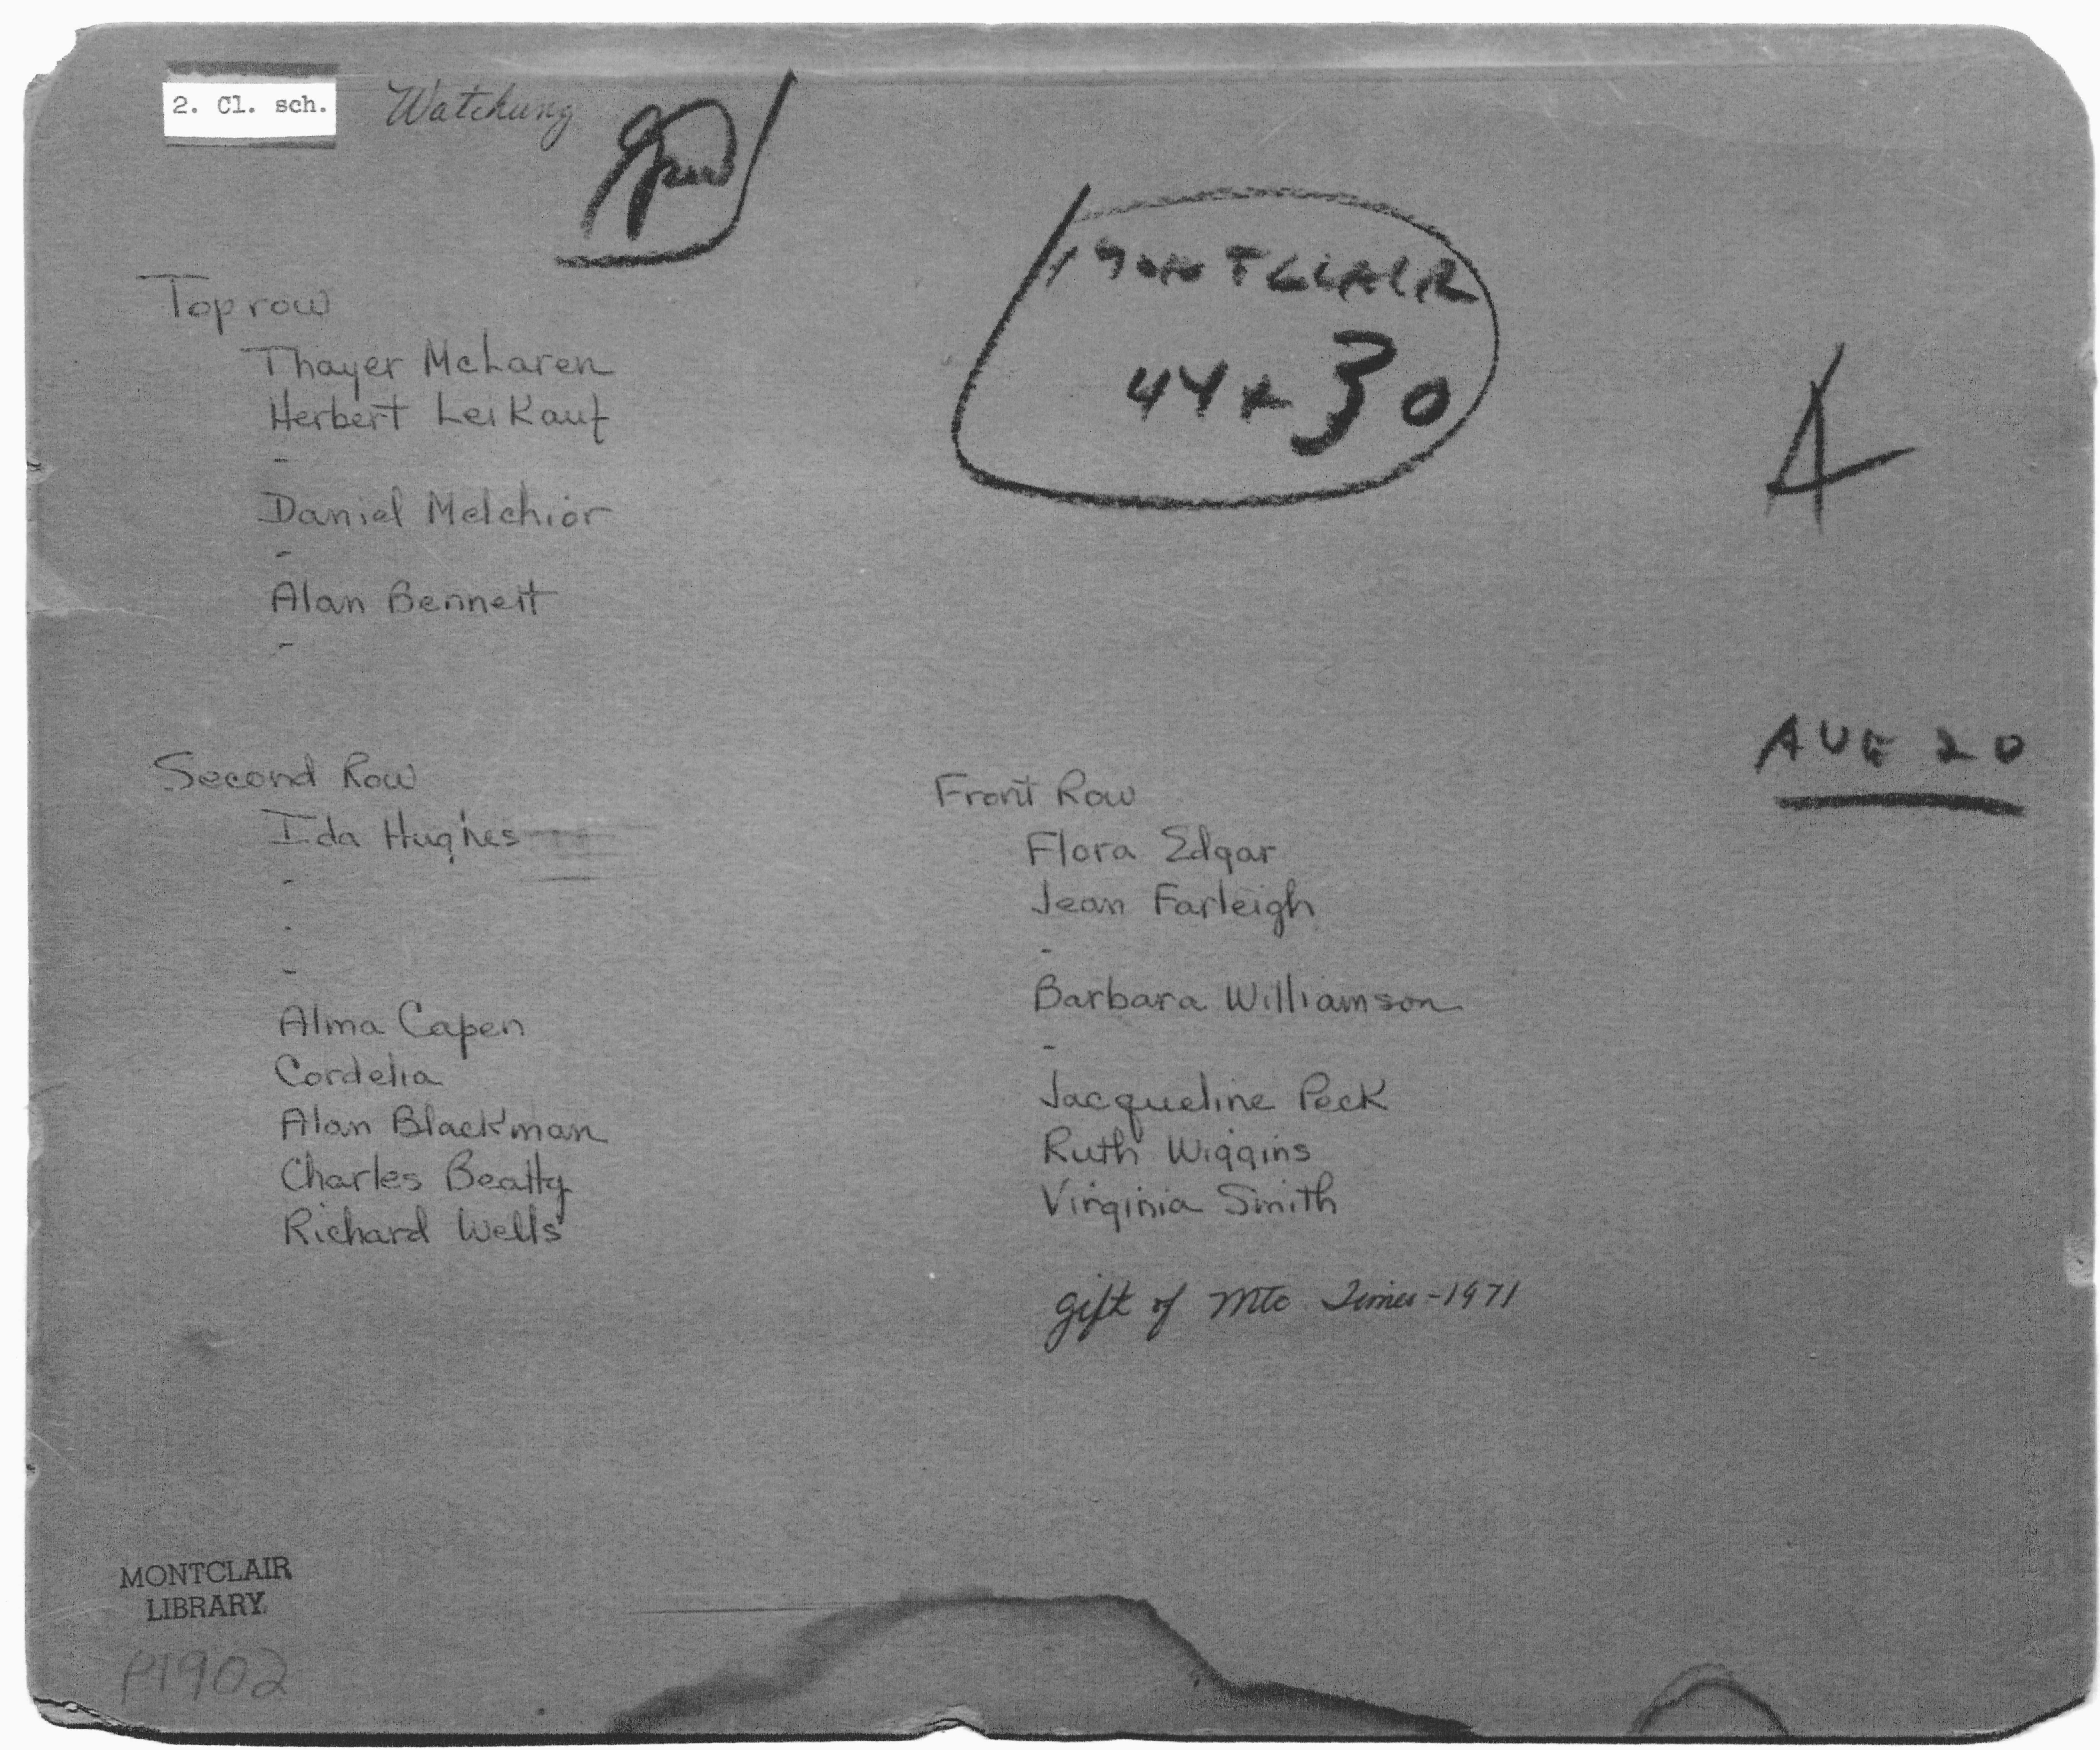 2. Cl. sch.
Watchung
MONTCLAIR
44 x 30
4
Top row
Thayer McLaren
Herbert Leikauf
-
Daniel Melchior
-
Alan Bennett
-
AUG 20
Second Row
Ida Hughes
-
-
-
Alma Capen
Cordelia
Alan Blackman
Charles Beatty
Richard Wells
Front Row
Flora Edgar
Jean Farleigh
-
Barbara Williamson
-
Jacqueline Peck
Ruth Wiggins
Virginia Smith
gift of Mtc. Times - 1971
MONTCLAIR
LIBRARY
P1902